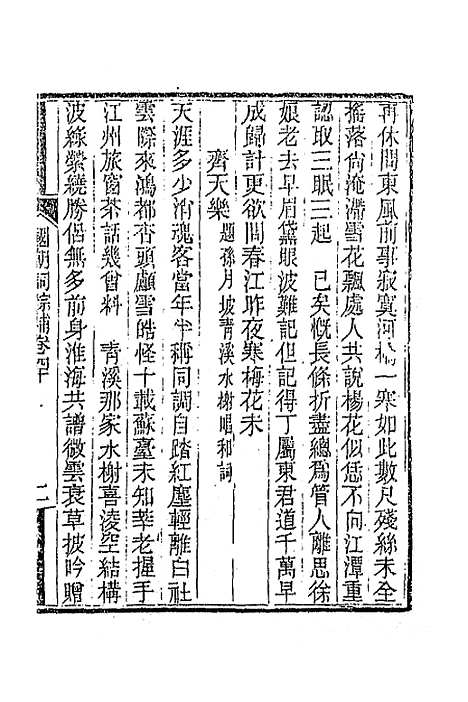 再休問東風前事寂寞河橋一寒如此數尺殘絲未全
搖落尙淹滯雪花飄處人共說楊花似恁不向江潭重
認取三眠三起　已矣慨長條折盡總爲管人離思徐
娘老去早眉黛眼波難記但記得丁屬東君道千萬早
成歸計更欲問春江昨夜寒梅花未
齊天樂 題孫月坡靑溪水榭唱和詞
天涯多少消魂客當年半稱同調自踏紅塵輕離白社
雲際來鴻都杳頭顱雪皓怪十載蘇臺未知莘老握手
江州旅窗茶話幾曾料　靑溪那家水榭喜淩空結構
波綠縈繞勝侶無多前身淮海共譜微雲衰草披吟贈
國朝詞綜補卷四十
二